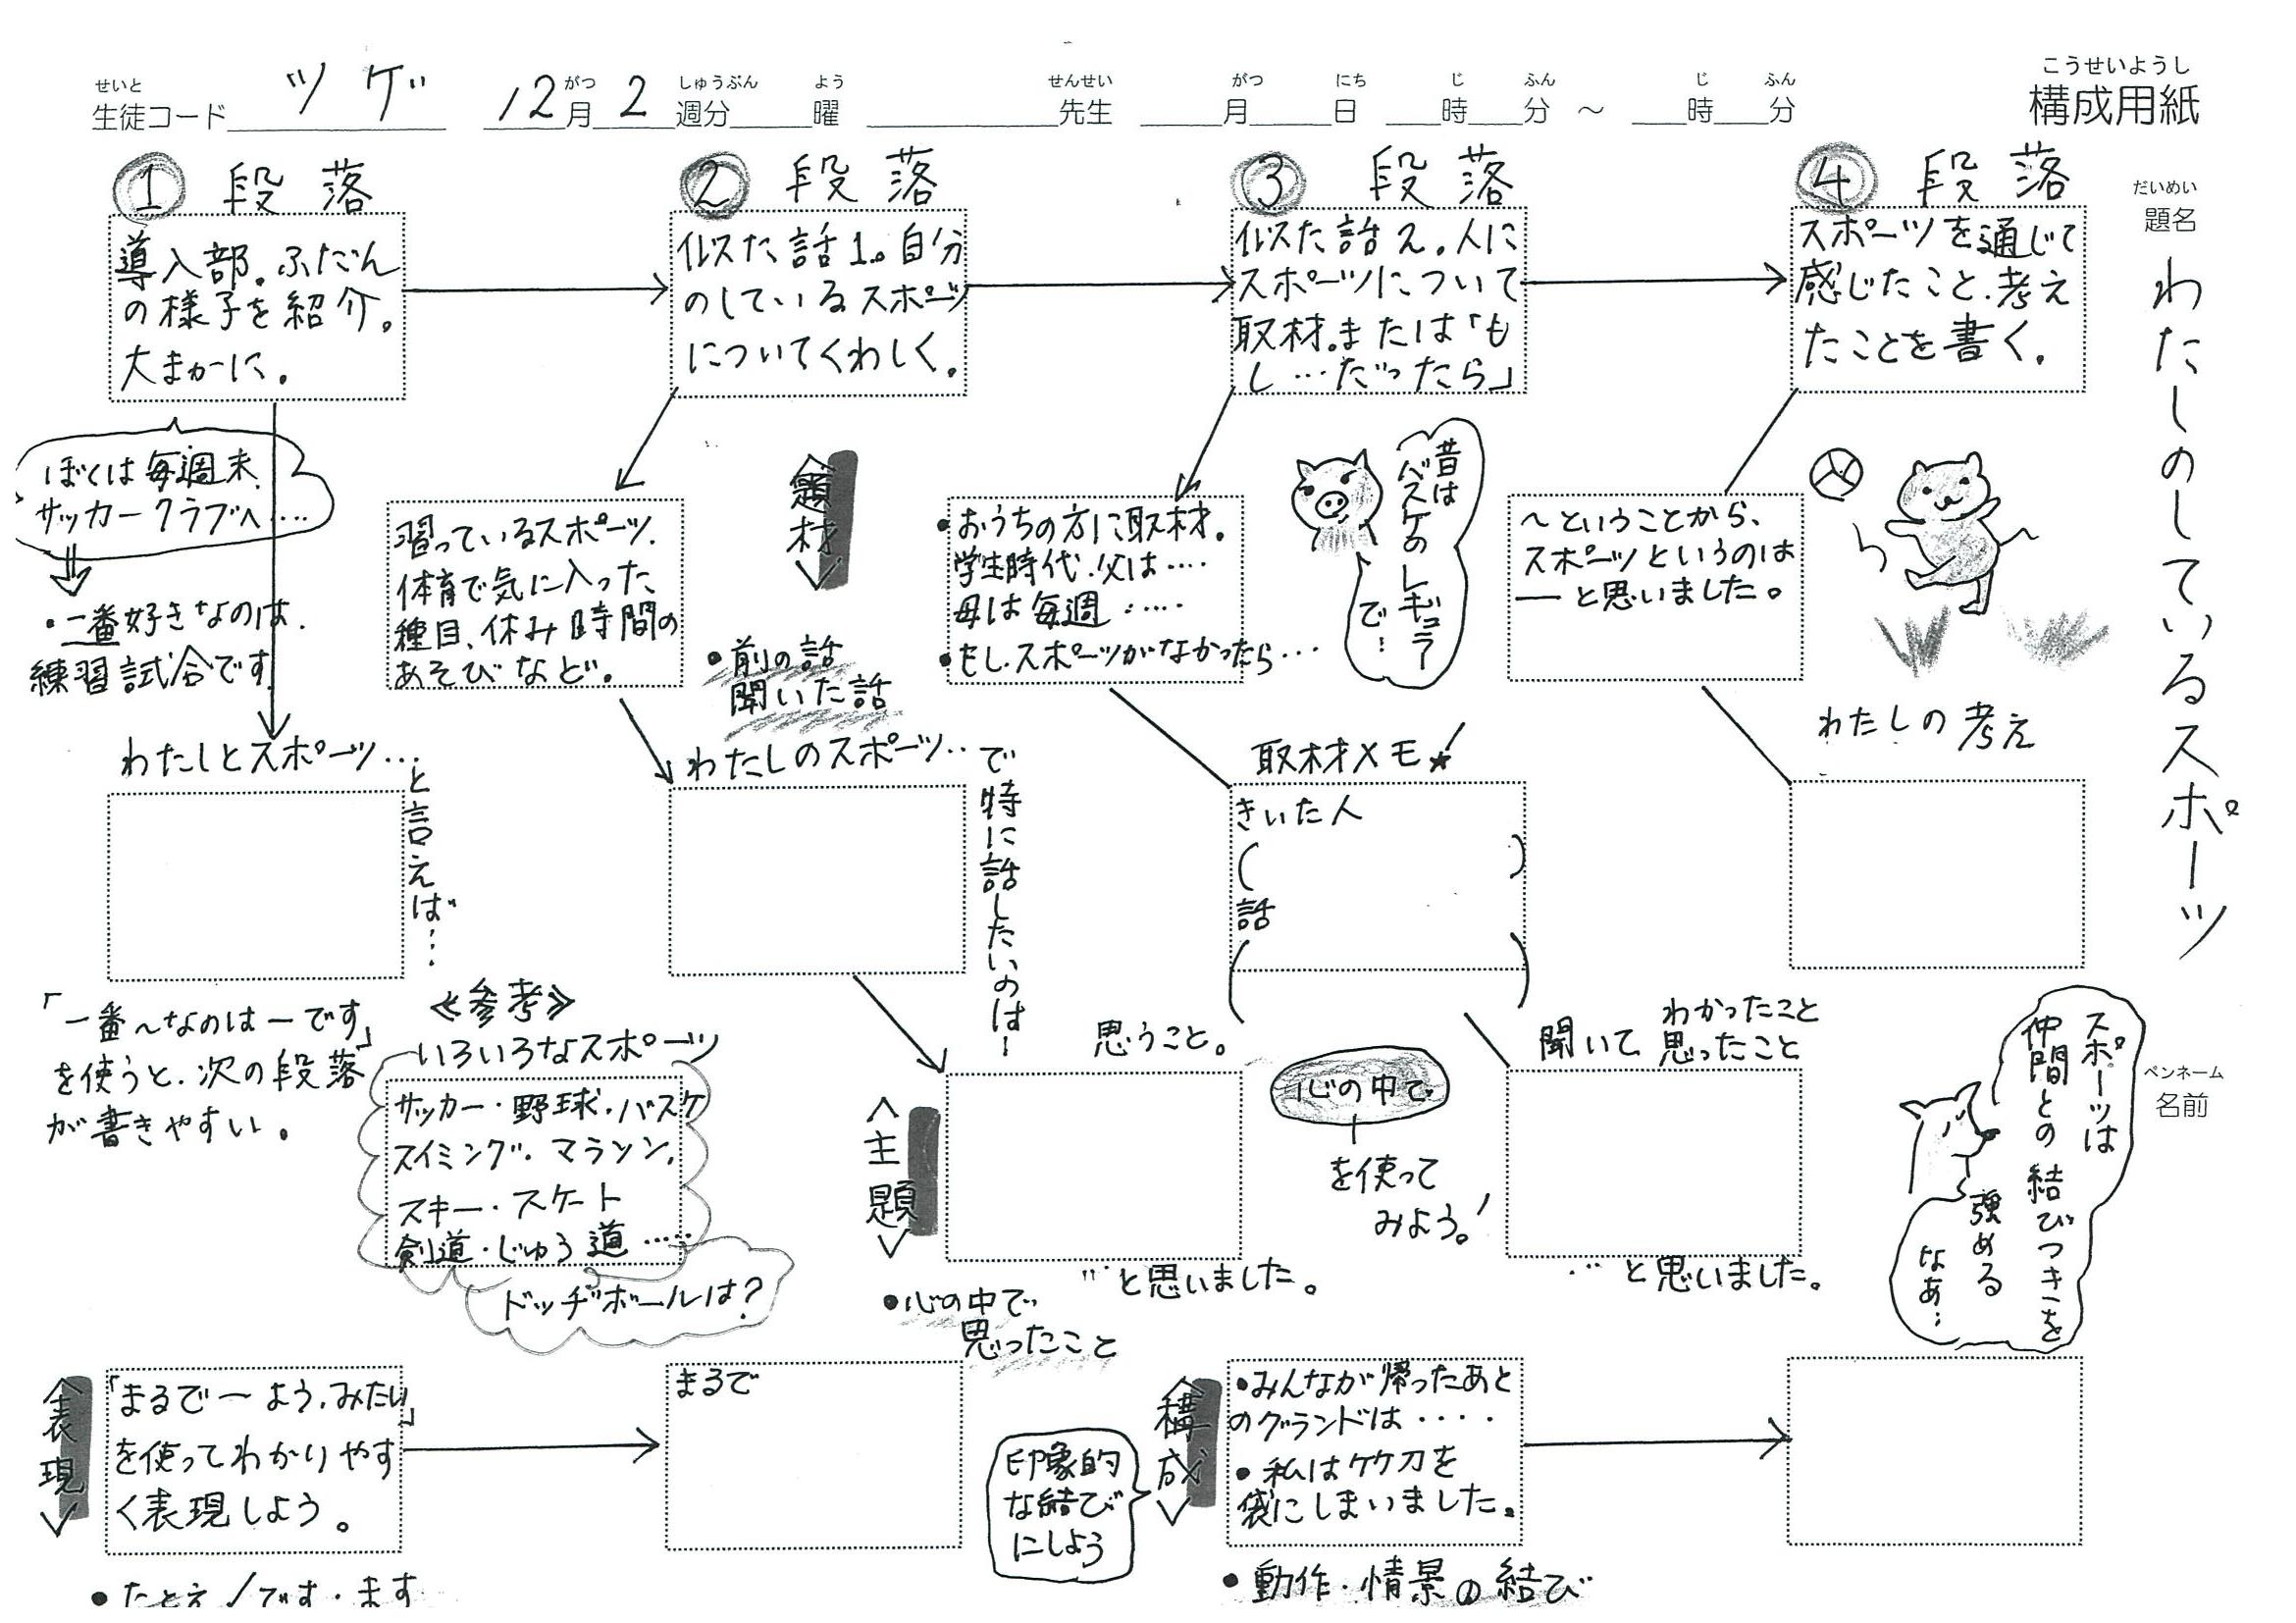 せいと
生徒コード ツゲ 12月 2週分 曜 先生 月 日 時 分 ～ 時 分
がつ しゅうぶん よう せんせい がつ にち じ ふん じ ふん
こうせいようし
構成用紙
だいめい
題名
わたしのしているスポーツ
ペンネーム
名前
① 段落
導入部。ふだん
の様子を紹介。
大まかに。
② 段落
似た話1。自分
のしているスポーツ
についてくわしく。
③ 段落
似た話2。人に
スポーツについて
取材。または「も
し…だったら」
④ 段落
スポーツを通じて
感じたこと、考え
たことを書く。
ぼくは毎週末、
サッカークラブへ....
・一番好きなのは、
練習試合です。
習っているスポーツ、
体育で気に入った
種目、休み時間の
あそびなど。
＜題材＞
・前の話
聞いた話
・おうちの方に取材。
学生時代、父は....
母は毎週.....
・もし、スポーツがなかったら...
昔は
バスケの
レギュラー
で…
～ということから、
スポーツというのは
―と思いました。
わたしとスポーツ…
と言えば…
わたしのスポーツ..
で特に話したいのは―
取材メモ★
きいた人
( )
話
( )
わたしの考え
「一番～なのは―です」
を使うと、次の段落
が書きやすい。
≪参考≫
いろいろなスポーツ
サッカー・野球・バスケ
スイミング・マラソン、
スキー・スケート
剣道・じゅう道……
ドッヂボールは？
思うこと。
＜主題＞
…と思いました。
・心の中で
思ったこと
心の中で
を使って
みよう！
聞いて わかったこと
思ったこと
…と思いました。
スポーツは
仲間との結びつきを
強める
なあ…
＜表現＞
「まるで～よう、みたい」
を使ってわかりやす
く表現しよう。
・たとえ/です・ます
まるで
印象的
な結び
にしよう
＜構成＞
・みんなが帰ったあと
のグランドは・・・・
・私はケケ刀を
袋にしまいました。
・動作・情景の結び